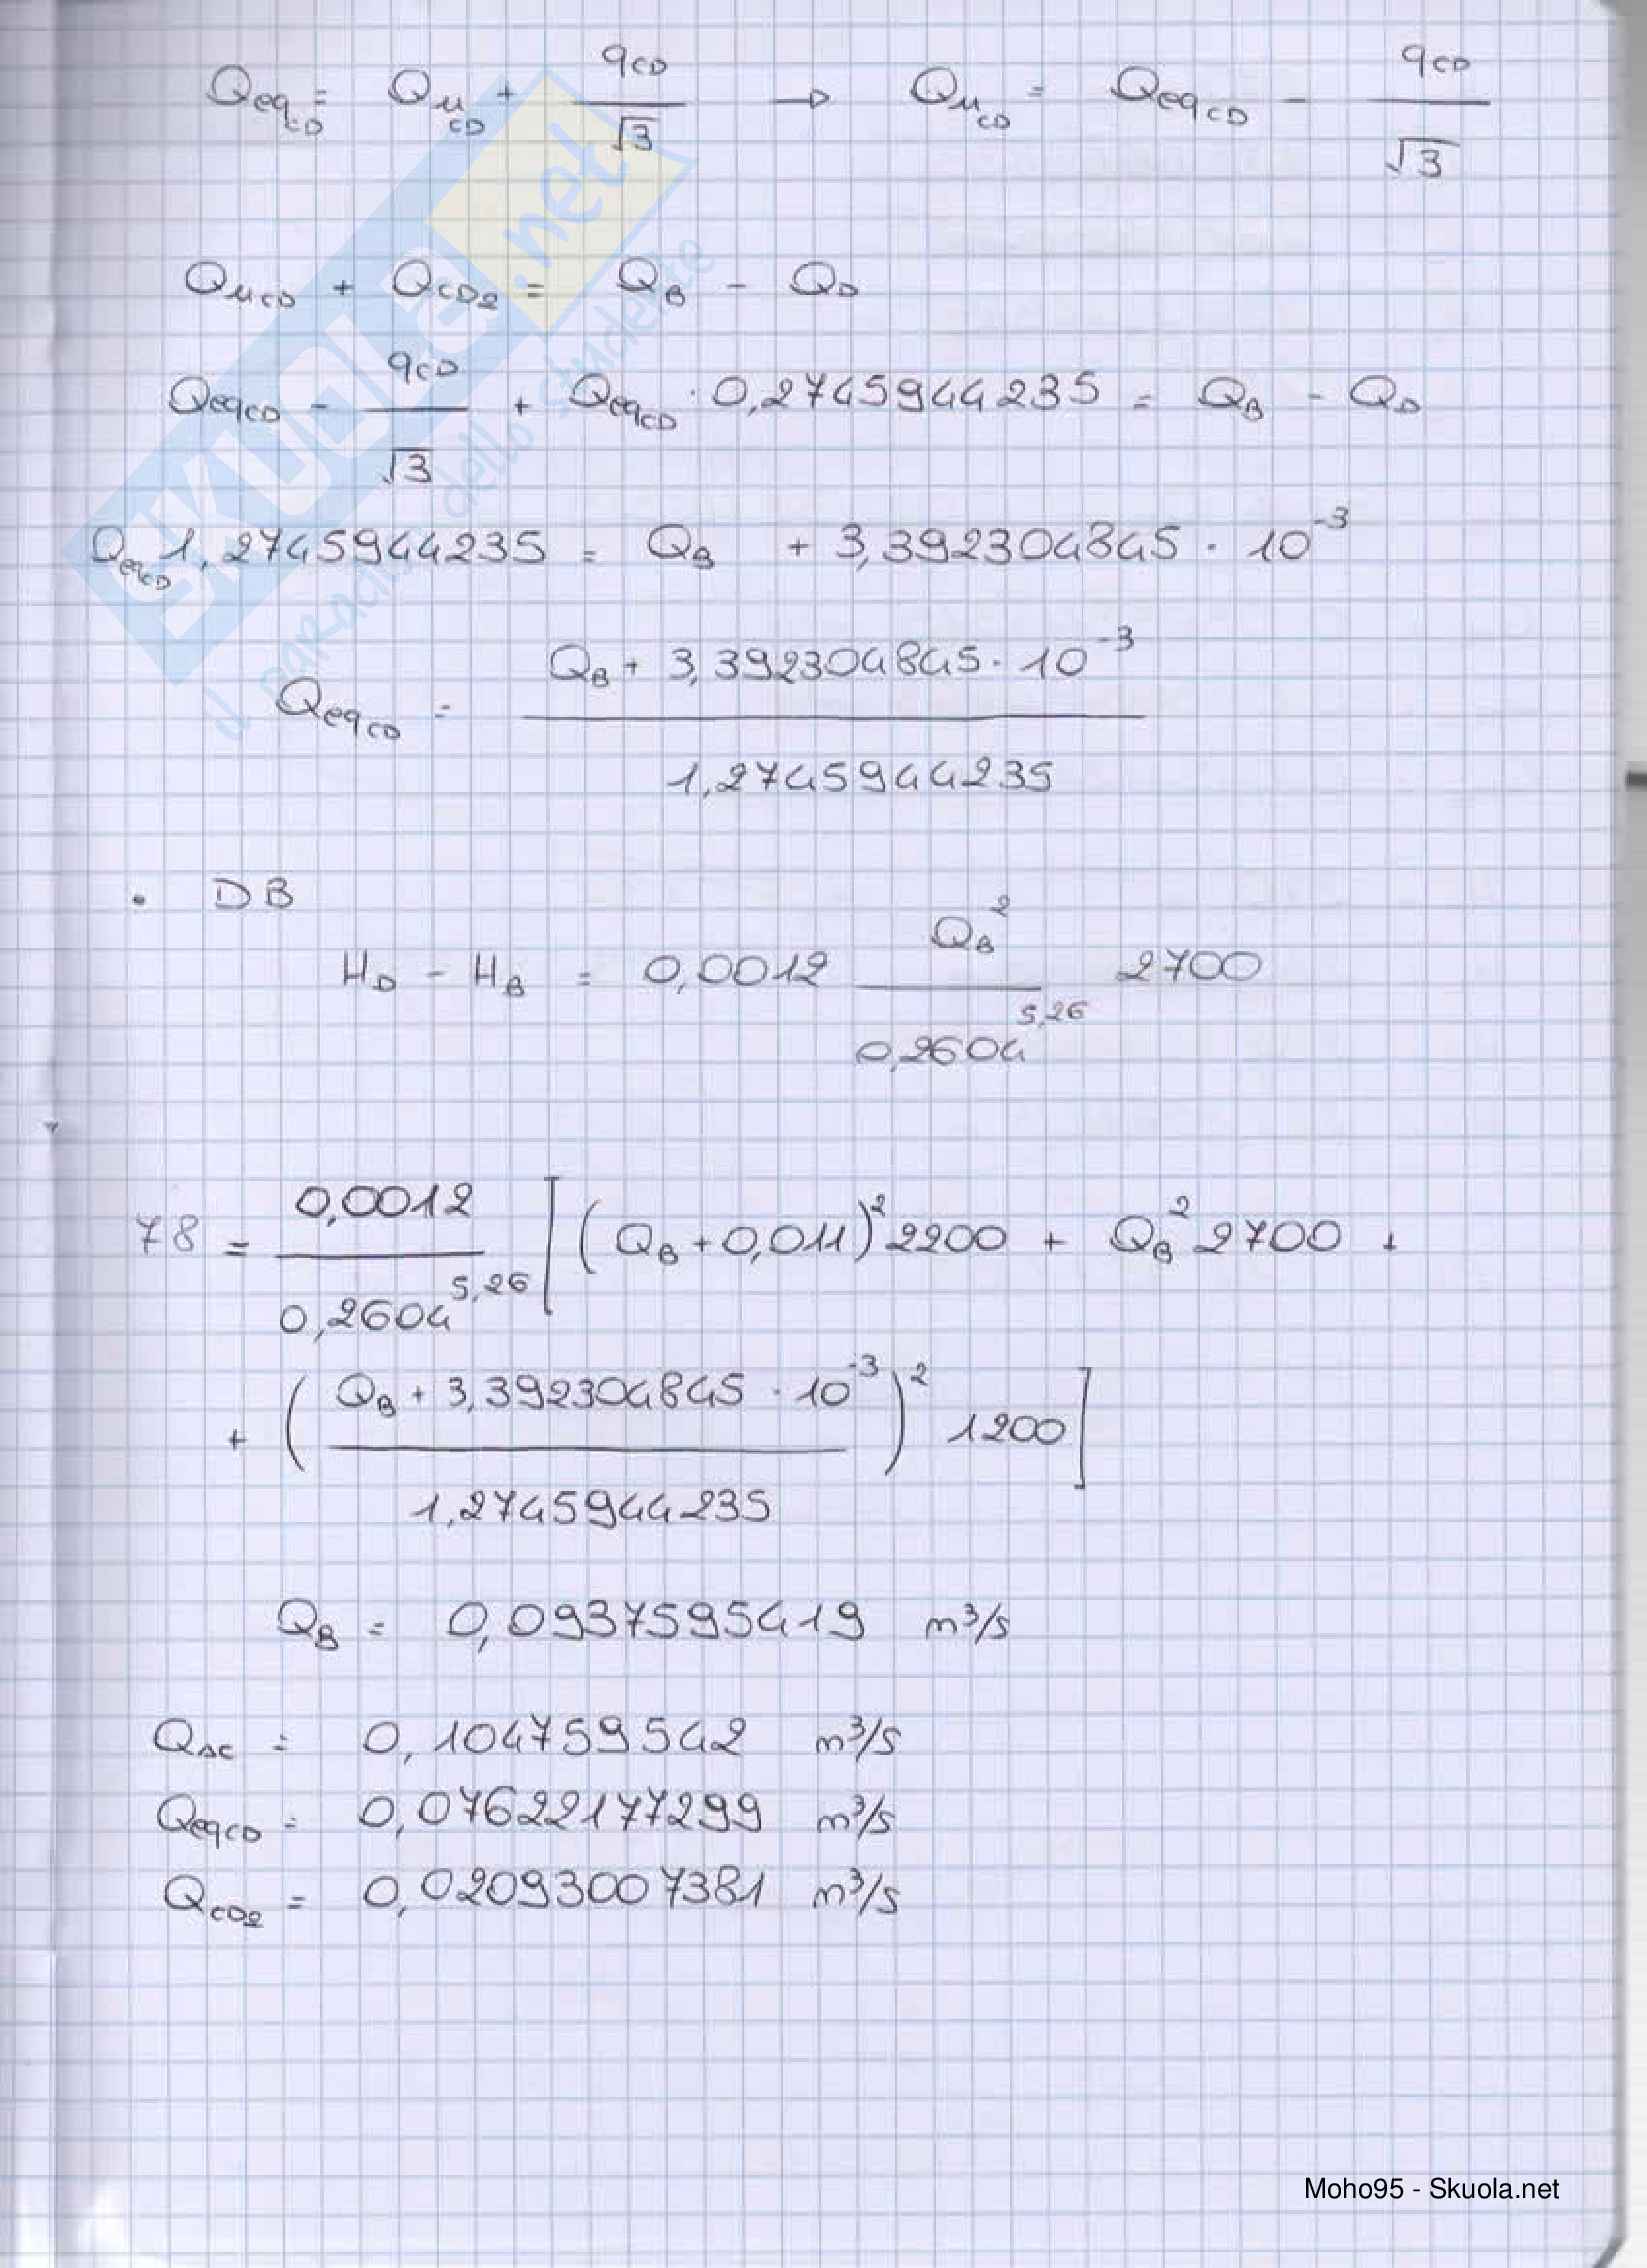 Qeq_CD = Qu_CD + q_CD/√3 → Qu_CD = Qeq_CD - q_CD/√3
Qu_CD + Q_CD2 = Q_B - Q_D
Qeq_CD - q_CD/√3 + Qeq_CD · 0,2745944235 = Q_B - Q_D
Qeq_CD 1,2745944235 = Q_B + 3,392304845 · 10^-3
Qeq_CD = (Q_B + 3,392304845 · 10^-3)/1,2745944235
• DB
H_D - H_B = 0,0012 Q_B^2/0,2604^5,26 2700
78 = 0,0012/0,2604^5,26 [(Q_B + 0,011)^2 2200 + Q_B^2 2700 +
+ ((Q_B + 3,392304845 · 10^-3)/1,2745944235)^2 1200]
Q_B = 0,0937595419 m³/s
Q_AC = 0,104759542 m³/s
Qeq_CD = 0,07622177299 m³/s
Q_CD2 = 0,02093007381 m³/s
SKUOLA.net
il paradiso dello studente
Moho95 - Skuola.net